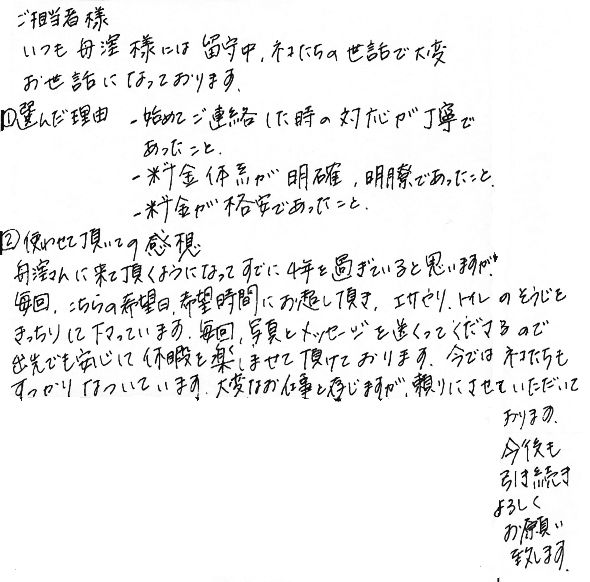 ご担当者様
いつも舟窪様には留守中、ネコたちの世話で大変
お世話になっております。
①選んだ理由 -始めてご連絡した時の対応が丁寧で
あったこと。
-料金体系が明確、明瞭であったこと。
-料金が格安であったこと。
②使わせて頂いての感想
舟窪さんに来て頂くようになってすでに4年を過ぎていると思いますが、
毎回、こちらの希望日、希望時間にお越し頂き、エサやり、トイレのそうじを
きっちりして下さっています。毎回、写真とメッセージを送ってくださるので
出先でも安心して休暇を楽しませて頂けております。今ではネコたちも
すっかりなついています。大変なお仕事と存じますが、頼りにさせていただいて
おります。
今後も
引き続き
よろしく
お願い
致します。